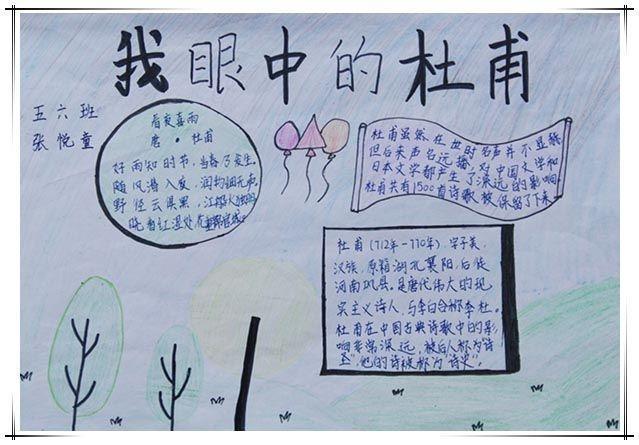 我眼中的杜甫
五六班
张悦童
春夜喜雨
唐·杜甫
好雨知时节,当春乃发生。
随风潜入夜,润物细无声。
野径云俱黑,江船火独明
晓看红湿处,花重锦官城。
杜甫虽然在世时名声并不显赫
但后来声名远播,对中国文学和
日本文学都产生了深远的影响
杜甫共有1500首诗歌被保留了下来
杜甫(712年-770年),字子美,
汉族,原籍湖北襄阳,后徙
河南巩县。是唐代伟大的现
实主义诗人,与李白合称李杜。
杜甫在中国古典诗歌中的影
响非常深远,被后人称为“诗
圣”,他的诗被称为“诗史”。